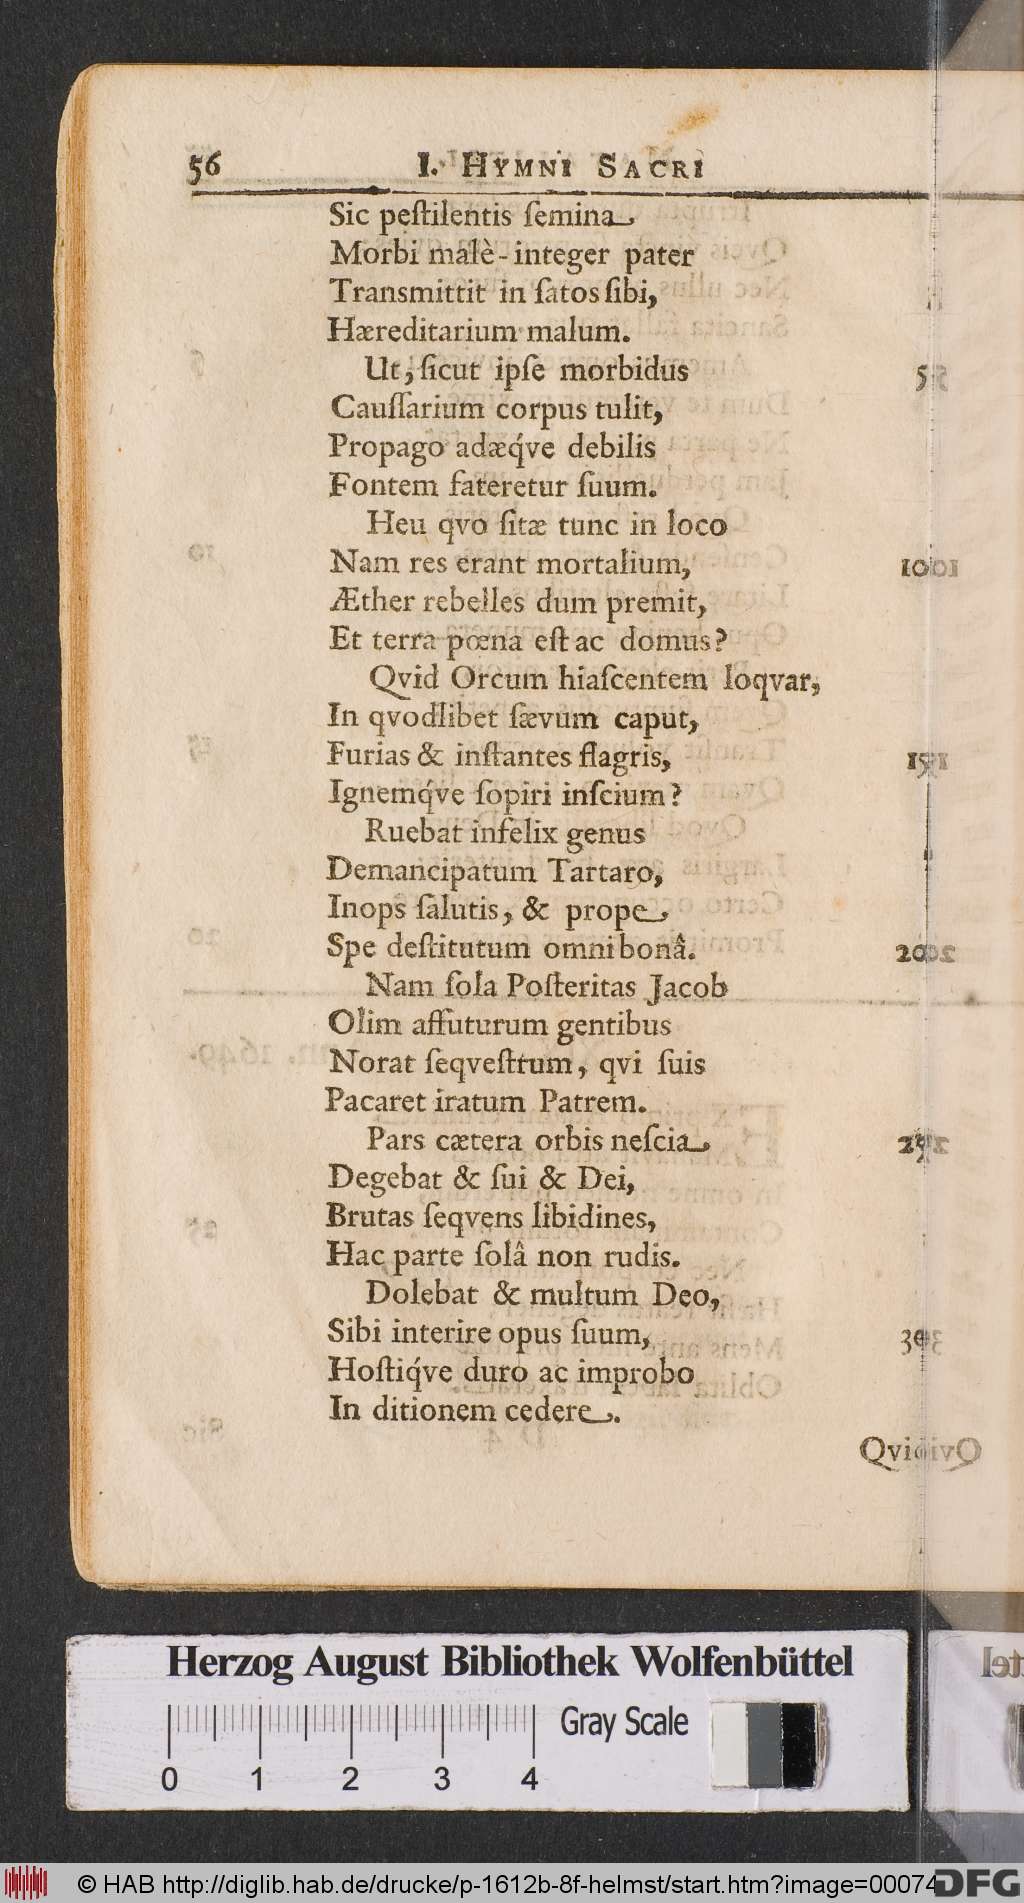 56 I. HYMNI SACRI
Sic peſtilentis ſemina
Morbi malè-integer pater
Transmittit in ſatos ſibi,
Hæreditarium malum.
Ut, ſicut ipſe morbidus 5
Cauſſarium corpus tulit,
Propago adæq́ve debilis
Fontem fateretur ſuum.
Heu qvo ſitæ tunc in loco
Nam res erant mortalium, 10
Æther rebelles dum premit,
Et terra pœna eſt ac domus?
Qvid Orcum hiaſcentem loqvar,
In qvodlibet ſævum caput,
Furias & inſtantes flagris, 15
Ignemq́ve ſopiri inſcium?
Ruebat infelix genus
Demancipatum Tartaro,
Inops ſalutis, & prope
Spe deſtitutum omni bonâ. 20
Nam ſola Poſteritas Jacob
Olim affuturum gentibus
Norat ſeqveſtrum, qvi ſuis
Pacaret iratum Patrem.
Pars cætera orbis neſcia 25
Degebat & ſui & Dei,
Brutas ſeqvens libidines,
Hac parte ſolâ non rudis.
Dolebat & multum Deo,
Sibi interire opus ſuum, 30
Hoſtiq́ve duro ac improbo
In ditionem cedere.
Qvi
Herzog August Bibliothek Wolfenbüttel
0 1 2 3 4 Gray Scale
© HAB http://diglib.hab.de/drucke/p-1612b-8f-helmst/start.htm?image=00074
DFG